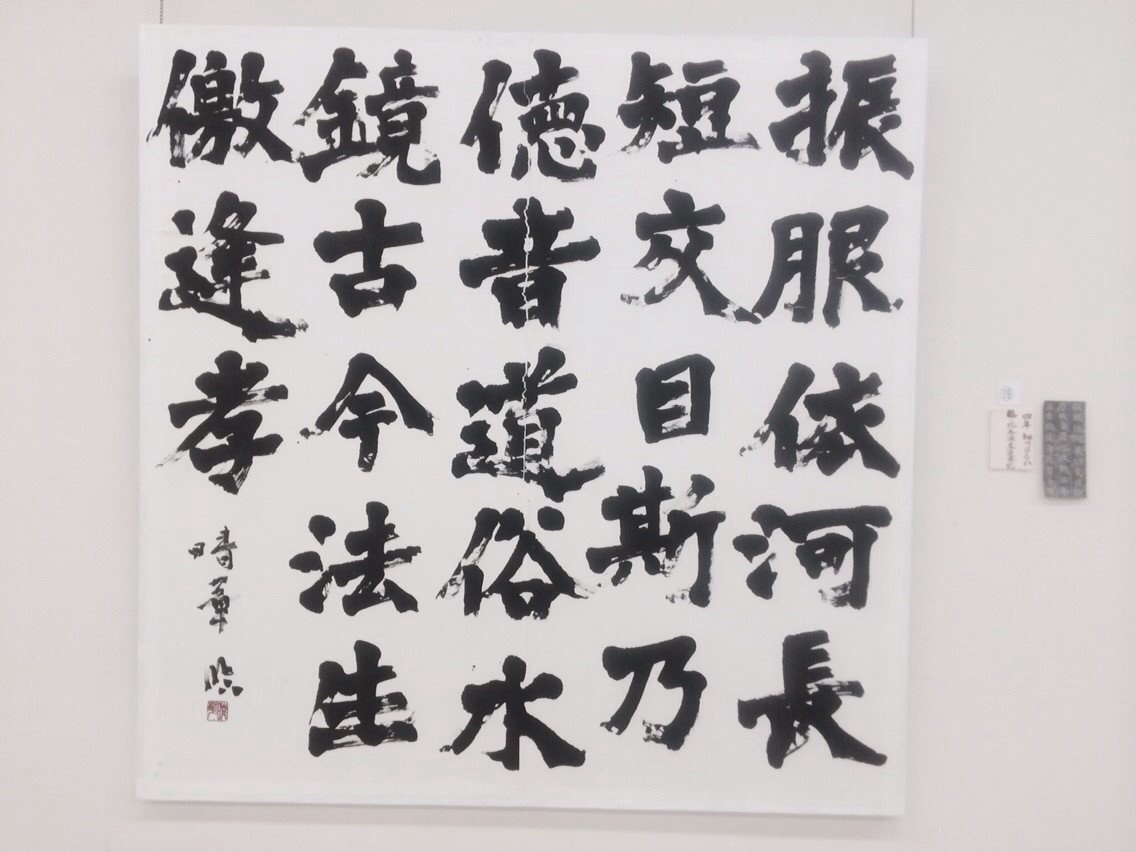 振服依河長
短交目斯乃
德昔道俗水
鏡古今法生
儌逢孝
臨
四年